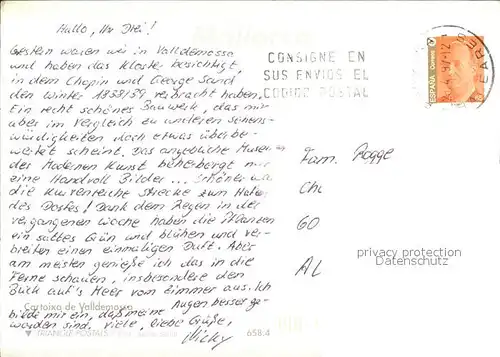 Hallo, Ihr Drei!
Gestern waren wir in Valldemossa
und haben das Kloster besichtigt,
in dem Chopin und George Sand
den Winter 1838/39 verbracht haben.
Ein recht schönes Bauwerk, das mir
aber im Vergleich zu anderen Sehens-
würdigkeiten doch etwas überbe-
wertet scheint. Das angebliche Museum
der Modernen Kunst beherbergt nur
eine Handvoll Bilder... Schöner war
die kurvenreiche Strecke zum Hafen
des Dorfes! Dank dem Regen in der
vergangenen Woche haben die Pflanzen
ein sattes Grün und blühen und ver-
breiten einen einmaligen Duft. Aber
am meisten genieße ich das in die
Ferne schauen, insbesondere den
Blick auf's Meer vom Zimmer aus. Ich
bilde mir ein, daß meine Augen besser ge-
worden sind. Viele, liebe Grüße,
Vicky
Cartoixa de Valldemossa
TRIANGLE POSTALS
658.4
CONSIGNE EN
SUS ENVIOS EL
CODIGO POSTAL
ESPAÑA
Correos
Fam. Rogge
Ch
60
AL
privacy protection
Datenschutz